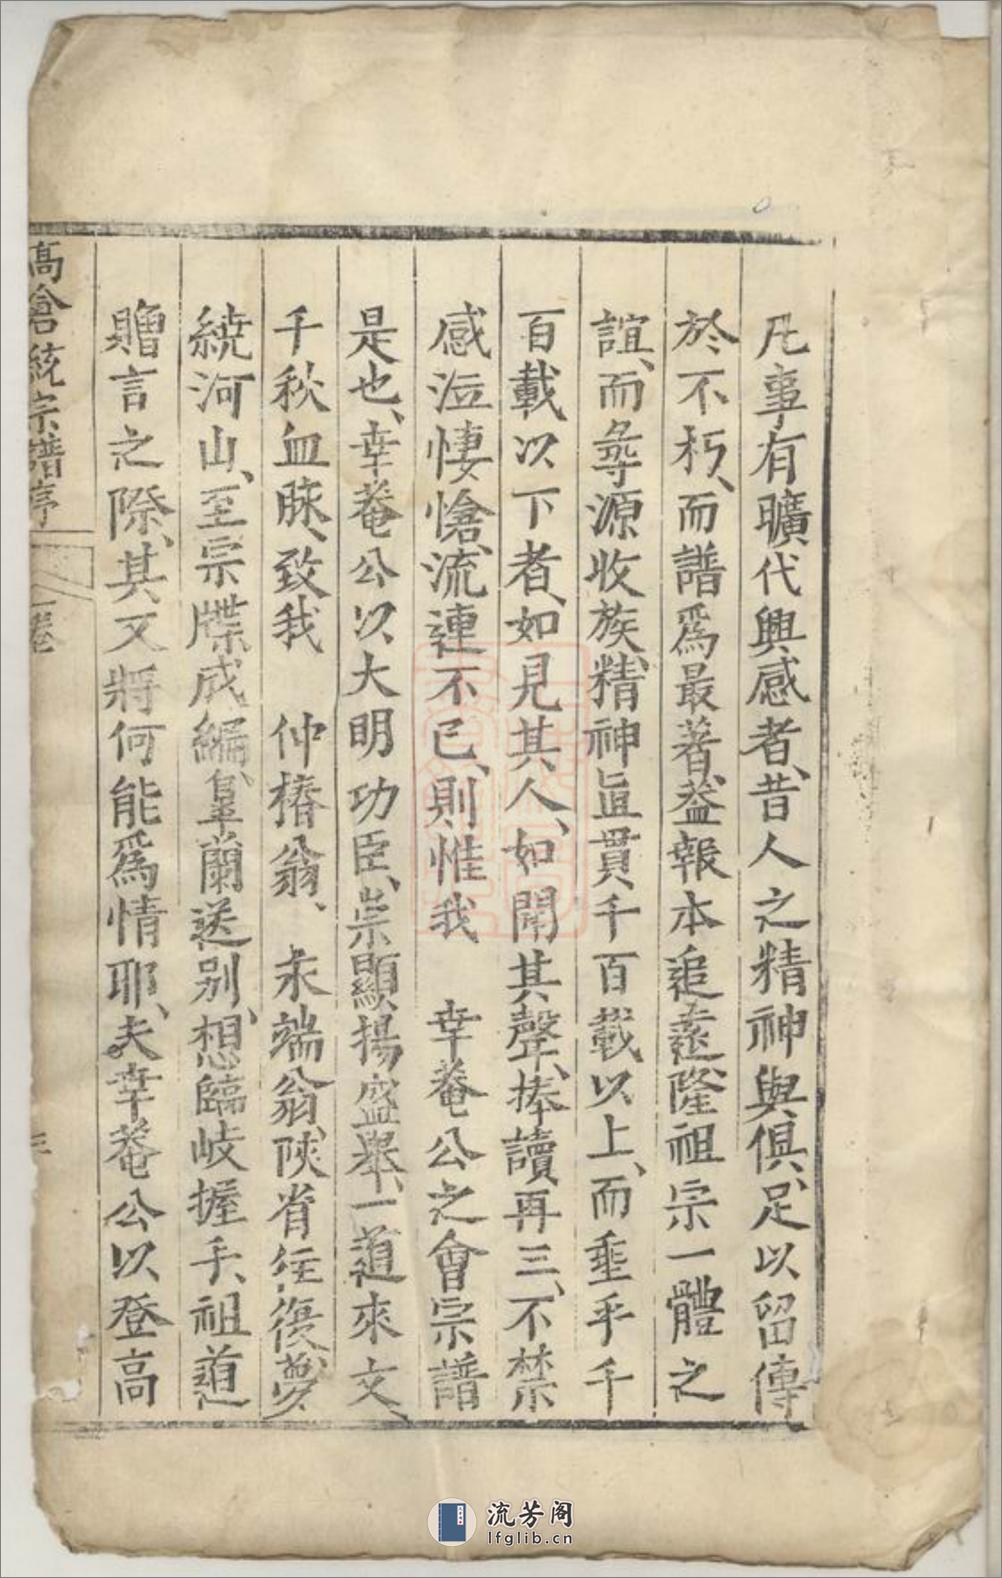 凡事有曠代興感者、昔人之精神與俱、足以留傳
於不朽、而譜爲最著、葢報本追遠、隆祖宗一體之
誼、而尋源收族、精神直貫、千百載以上、而垂乎千
百載以下者、如見其人、如聞其聲、捧讀再三、不禁
感泣悽愴、流連不已、則惟我 幸菴公之會宗譜
是也、幸菴公以大明功臣、崇顯揚盛舉、一道來文、
千秋血脉、致我 仲椿翁、 永端翁、陝省往復、夢
繞河山、至宗牒成編、臯蘭送别、想臨岐握手、祖道
贈言之際、其又將何能爲情耶、夫幸菴公以登高
高倉統宗譜序
一卷
三
流芳阁
lfglib.cn